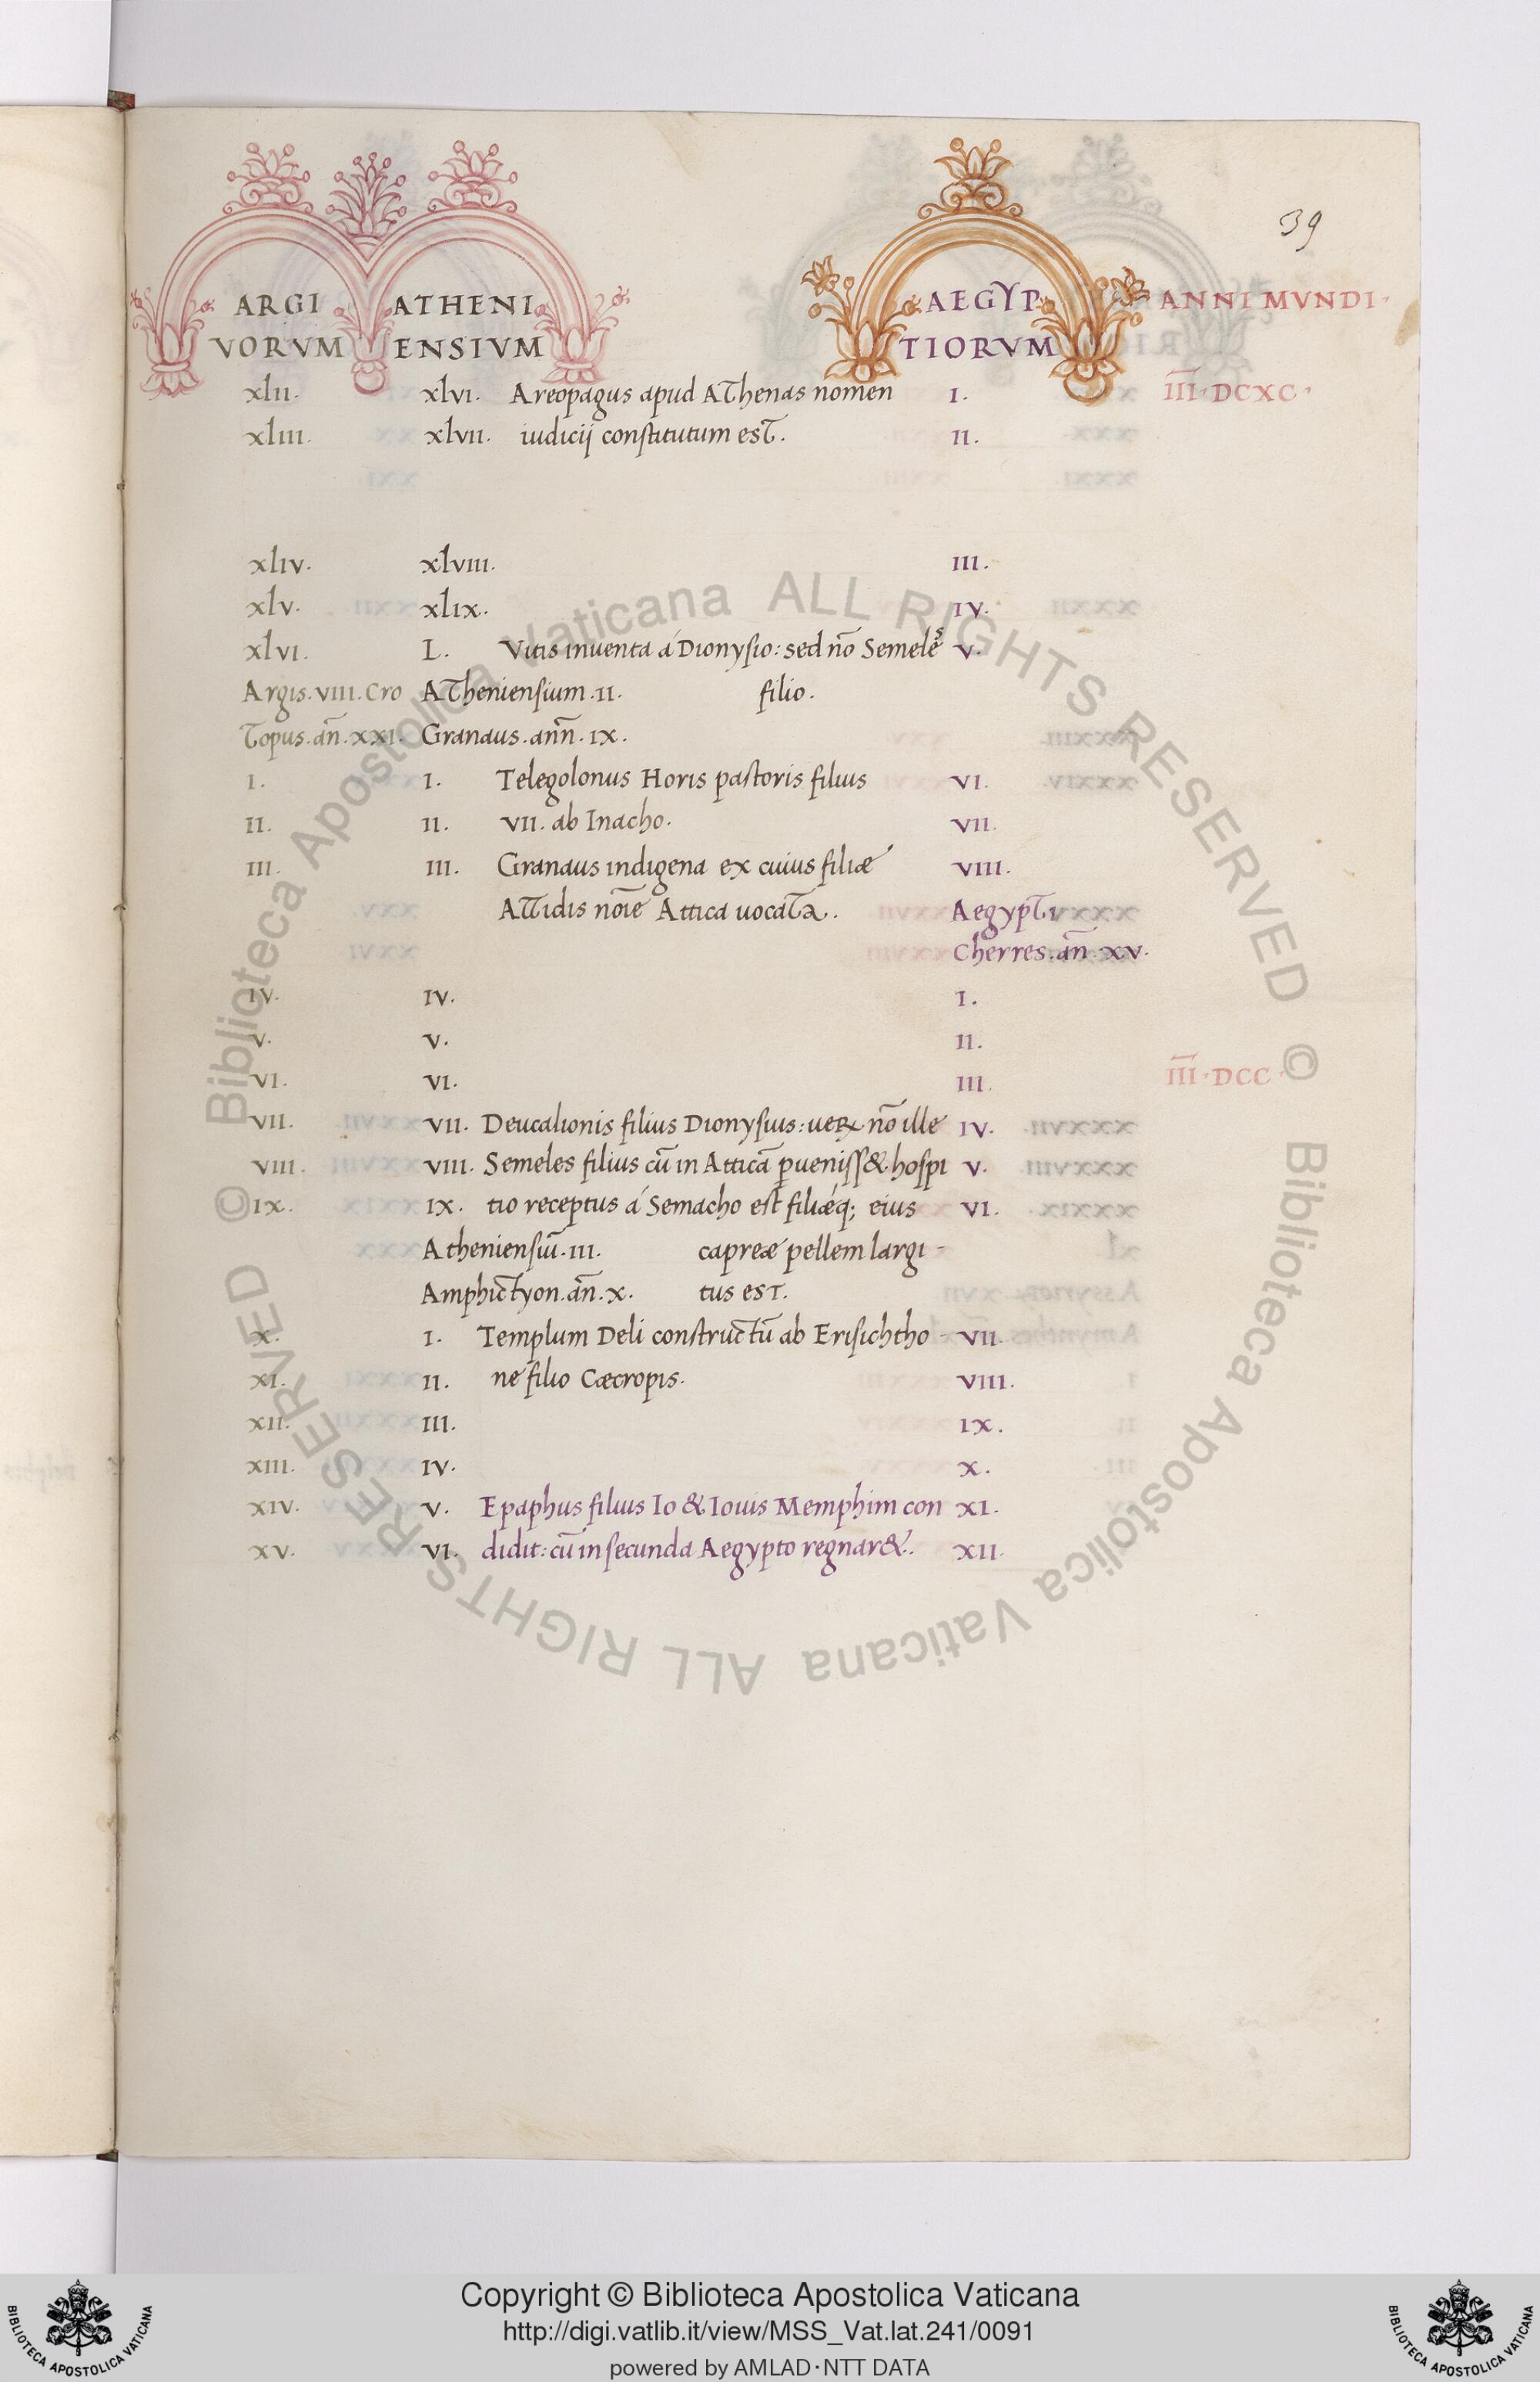 39
ARGI ATHENI AEGYP ANNI MVNDI·
VORVM ENSIVM TIORVM
xlii. xlvi. Areopagus apud Athenas nomen I. I̅I̅I̅·DCXC·
xliii. xlvii. iudicij constitutum est. II.
xliv. xlviii. III.
xlv. xlix. IV.
xlvi. L. Vitis inuenta á Dionysio: sed nō Semeles V.
Argis.VIII.Cro Atheniensium.II. filio.
topus.an̄.xxi. Granaus.ann̄.IX.
I. I. Telegolonus Horis pastoris filius VI.
II. II. VII. ab Inacho. VII.
III. III. Granaus indigena ex cuius filiæ VIII.
Attidis noīe Attica uocata. Aegypti
Cherres.an̄.xv.
IV. IV. I.
V. V. II.
VI. VI. III. I̅I̅I̅·DCC·
VII. VII. Deucalionis filius Dionysius: ueꝝ nō ille IV.
VIII. VIII. Semeles filius cū in Atticā ꝑueniss& hospi V.
IX. IX. tio receptus á Semacho est filiæq; eius VI.
Atheniensiū.III. capreæ pellem largi-
Amphictyon.an̄.x. tus est.
X. I. Templum Deli constructū ab Erisichtho- VII.
XI. II. ne filio Cæcropis. VIII.
XII. III. IX.
XIII. IV. X.
XIV. V. Epaphus filius Io & Iouis Memphim con XI.
XV. VI. didit: cū in secunda Aegypto regnar&. XII.
© Biblioteca Apostolica Vaticana ALL RIGHTS RESERVED © Biblioteca Apostolica Vaticana ALL RIGHTS RESERVED
Copyright © Biblioteca Apostolica Vaticana
http://digi.vatlib.it/view/MSS_Vat.lat.241/0091
powered by AMLAD·NTT DATA
BIBLIOTECA APOSTOLICA VATICANA
BIBLIOTECA APOSTOLICA VATICANA